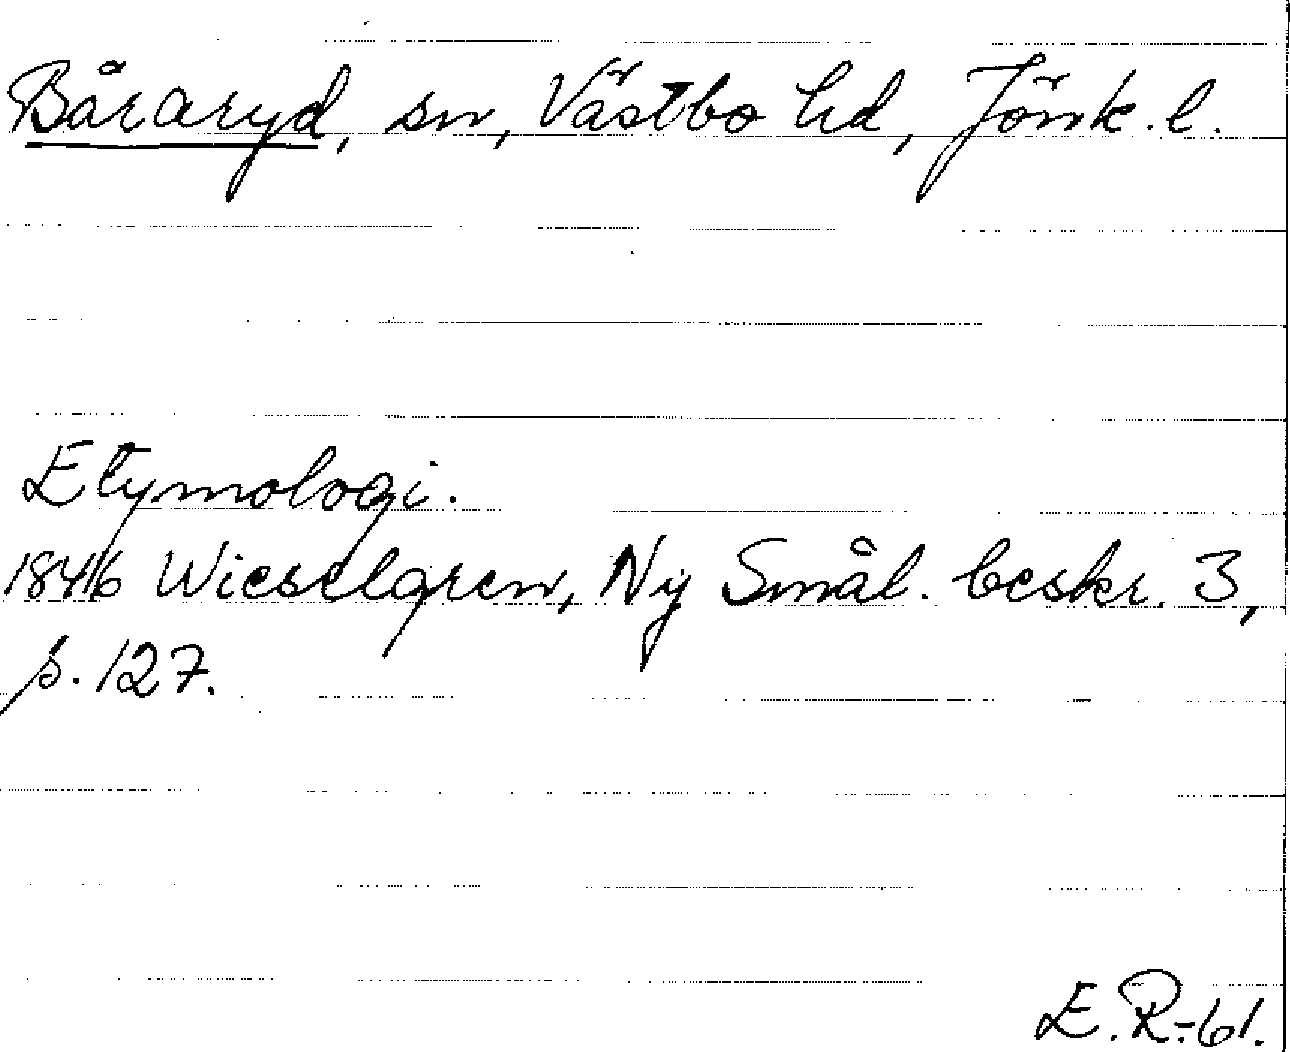 Båraryd, sn, Västbo hd, Jönk. l.
Etymologi.
1846 Wieselgren, Ny Smål. beskr. 3,
p. 127.
E. R.-61.